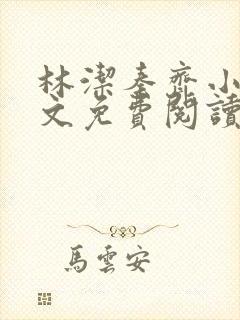 林潔秦齊小
文免費閱讀
馬雲安